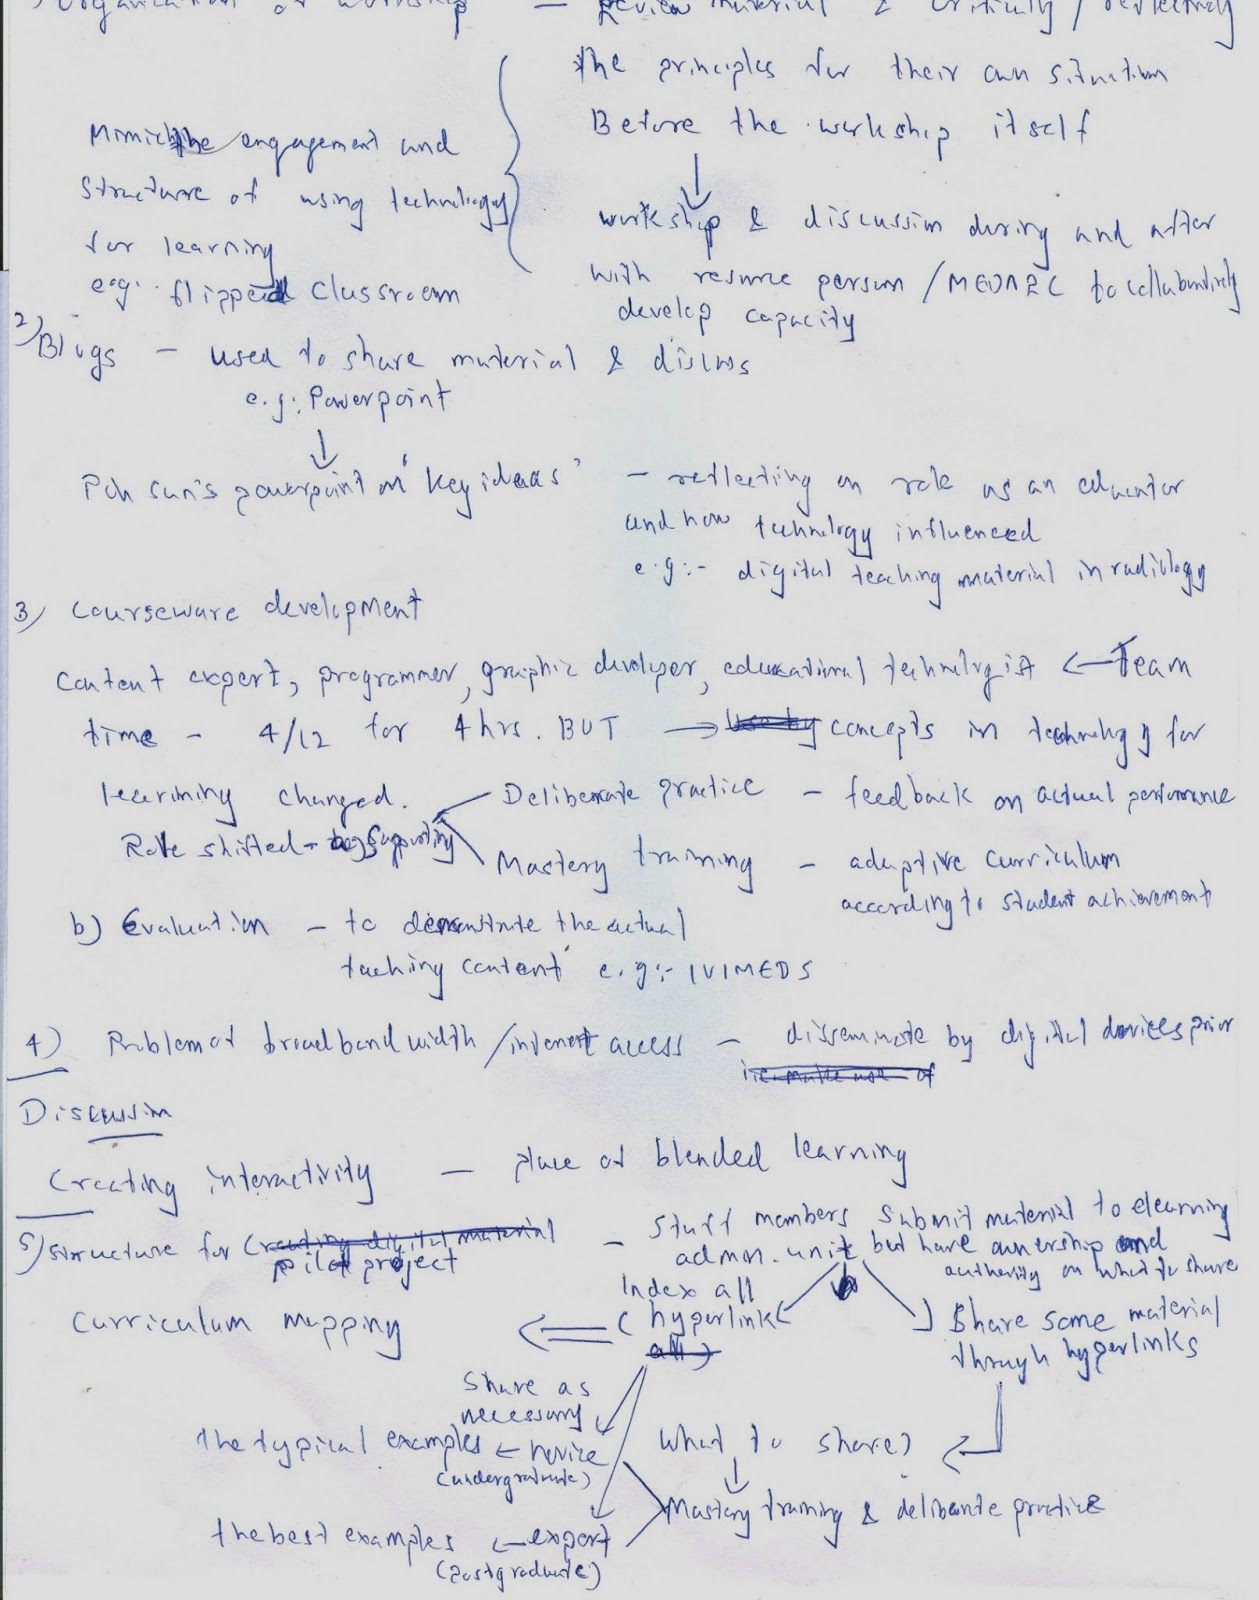 organization of workshop - Review material & critically / reflectively
the principles for their own situation
Before the workshop itself
Mimick the engagement and
structure of using technology
for learning
e.g. flipped classroom
workshop & discussion during and after
with resource person / MEDARC to collaboratively
develop capacity
2) Blogs - used to share material & discuss
e.g: Powerpoint
Poh Sun's powerpoint on 'key ideas' - reflecting on role as an educator
and how technology influenced
e.g:- digital teaching material in radiology
3) courseware development
content expert, programmer, graphic developer, educational technologist ← Team
time - 4/12 for 4 hrs. BUT → concepts in technology for
learning changed.
Deliberate practice - feedback on actual performance
Role shifted - supporting
Mastery training - adaptive curriculum
according to student achievement
b) Evaluation - to demonstrate the actual
teaching content e.g:- IVIMEDS
4) Problem of broadband width / internet access - disseminate by digital devices prior
i.e. make use of
Discussion
Creating interactivity - place of blended learning
5) structure for creating digital material - Staff members submit material to elearning
pilot project
admn. unit but have ownership and
authority on what to share
Index all
Curriculum mapping ⇐ (hyperlink
all)
Share some material
through hyperlinks
Share as
necessary
The typical examples ← novice
(undergraduate)
What to share?
Mastery training & delibrate practice
the best examples ← expert
(postgraduate)